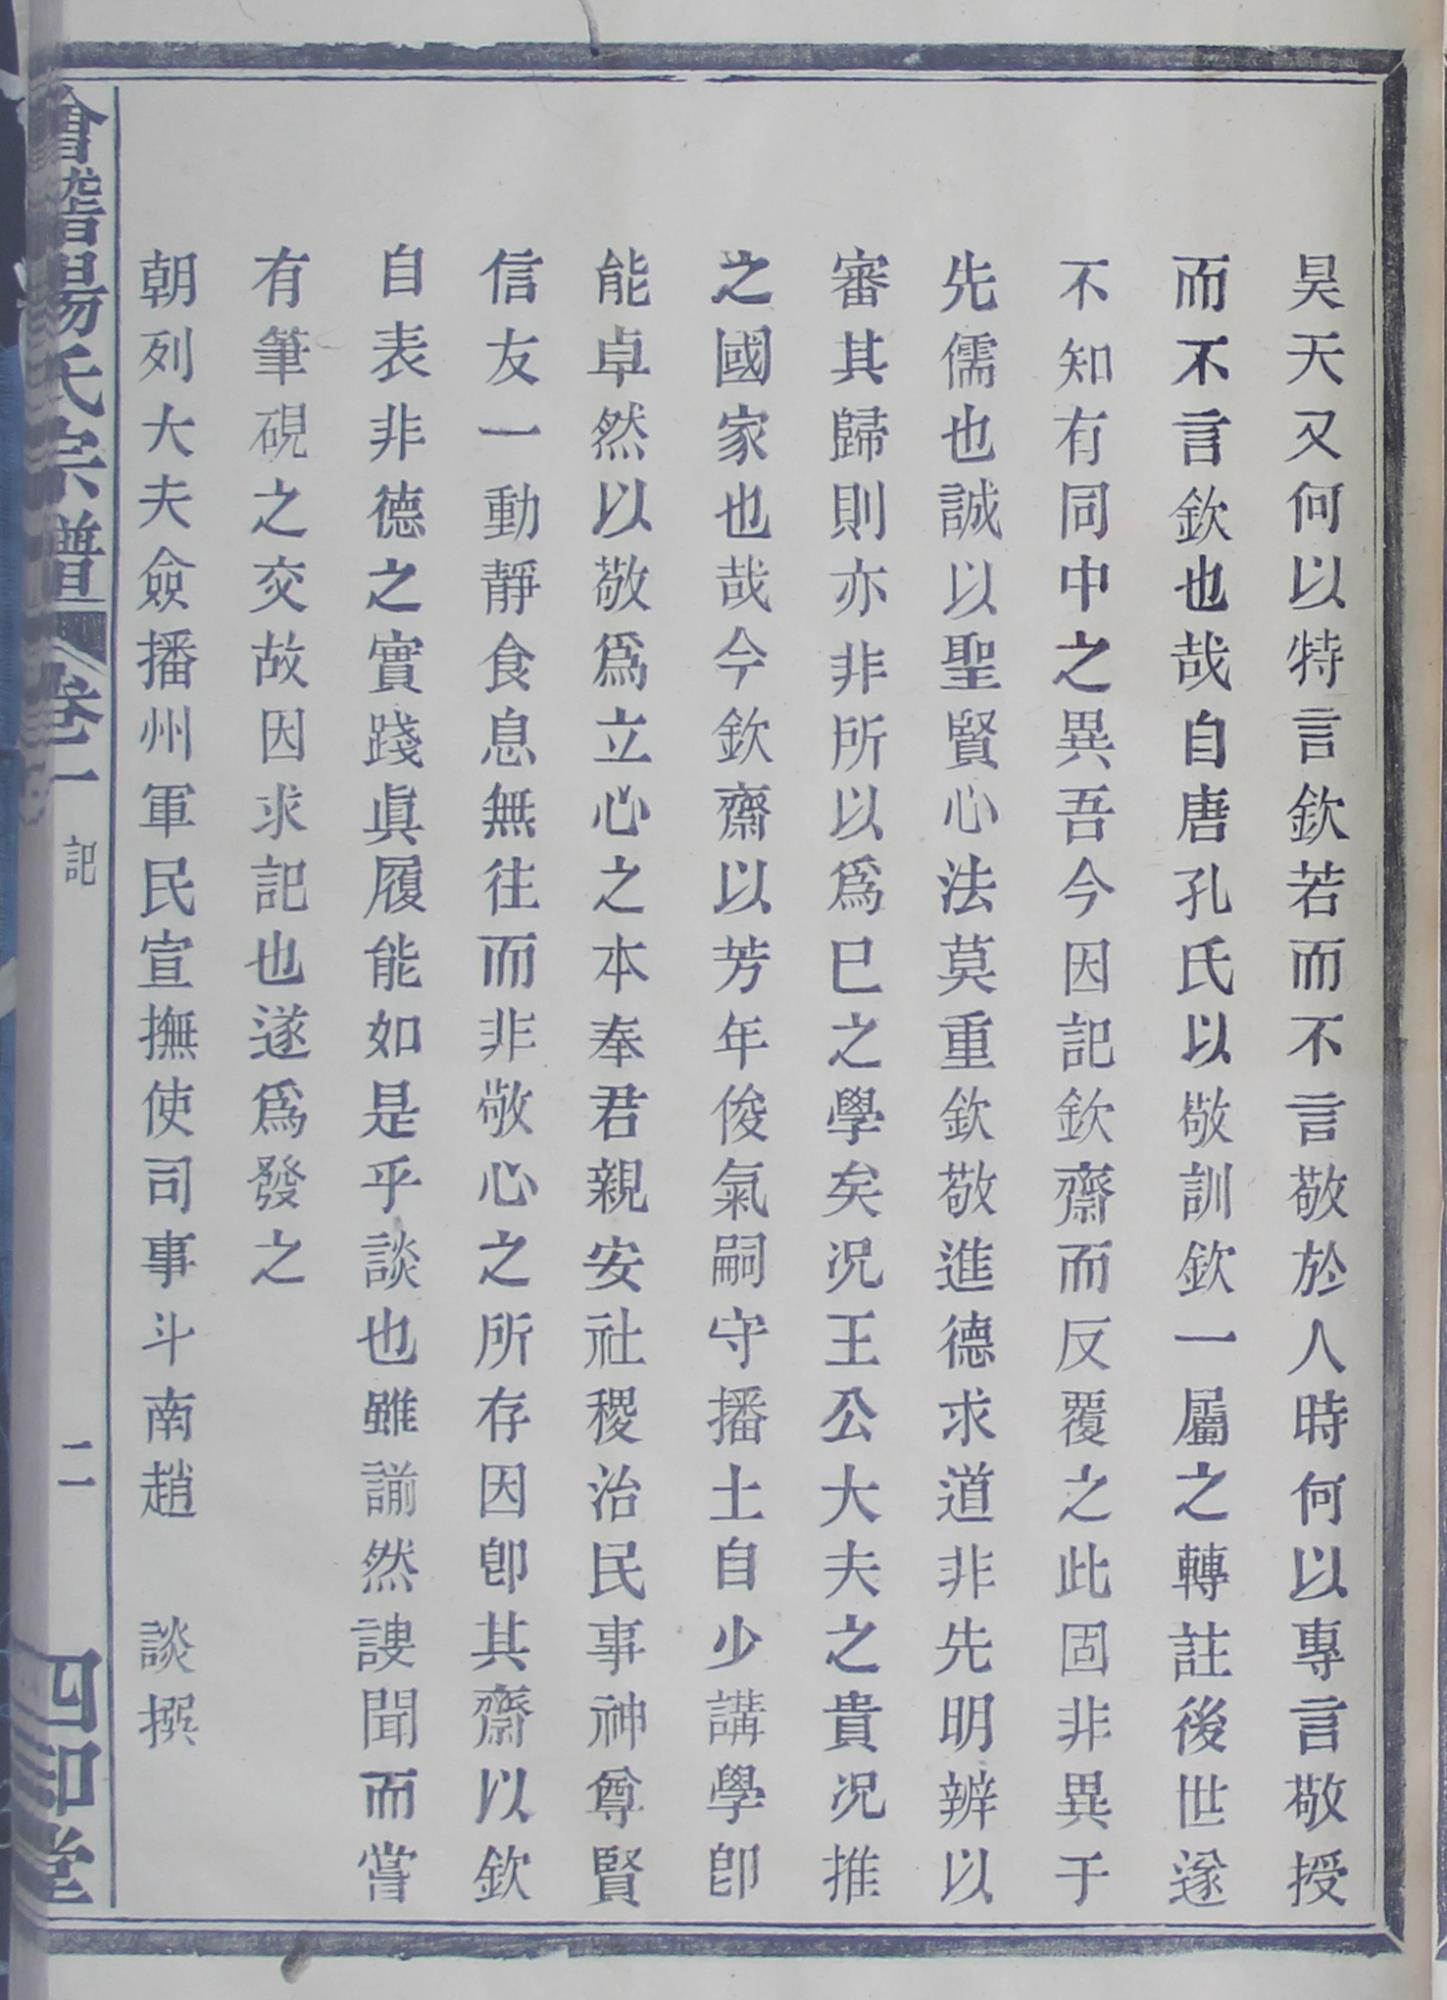 昊天又何以特言欽若而不言敬於人時何以專言敬授
而不言欽也哉自唐孔氏以敬訓欽一屬之轉註後世遂
不知有同中之異吾今因記欽齋而反覆之此固非異于
先儒也誠以聖賢心法莫重欽敬進德求道非先明辨以
審其歸則亦非所以爲巳之學矣况王公大夫之貴况推
之國家也哉今欽齋以芳年俊氣嗣守播土自少講學卽
能卓然以敬爲立心之本奉君親安社稷治民事神尊賢
信友一動靜食息無往而非敬心之所存因卽其齋以欽
自表非德之實踐眞履能如是乎談也雖譾然謏聞而嘗
有筆硯之交故因求記也遂爲發之
朝列大夫僉播州軍民宣撫使司事斗南趙　談撰
會稽楊氏宗譜 卷一 記 二 四知堂